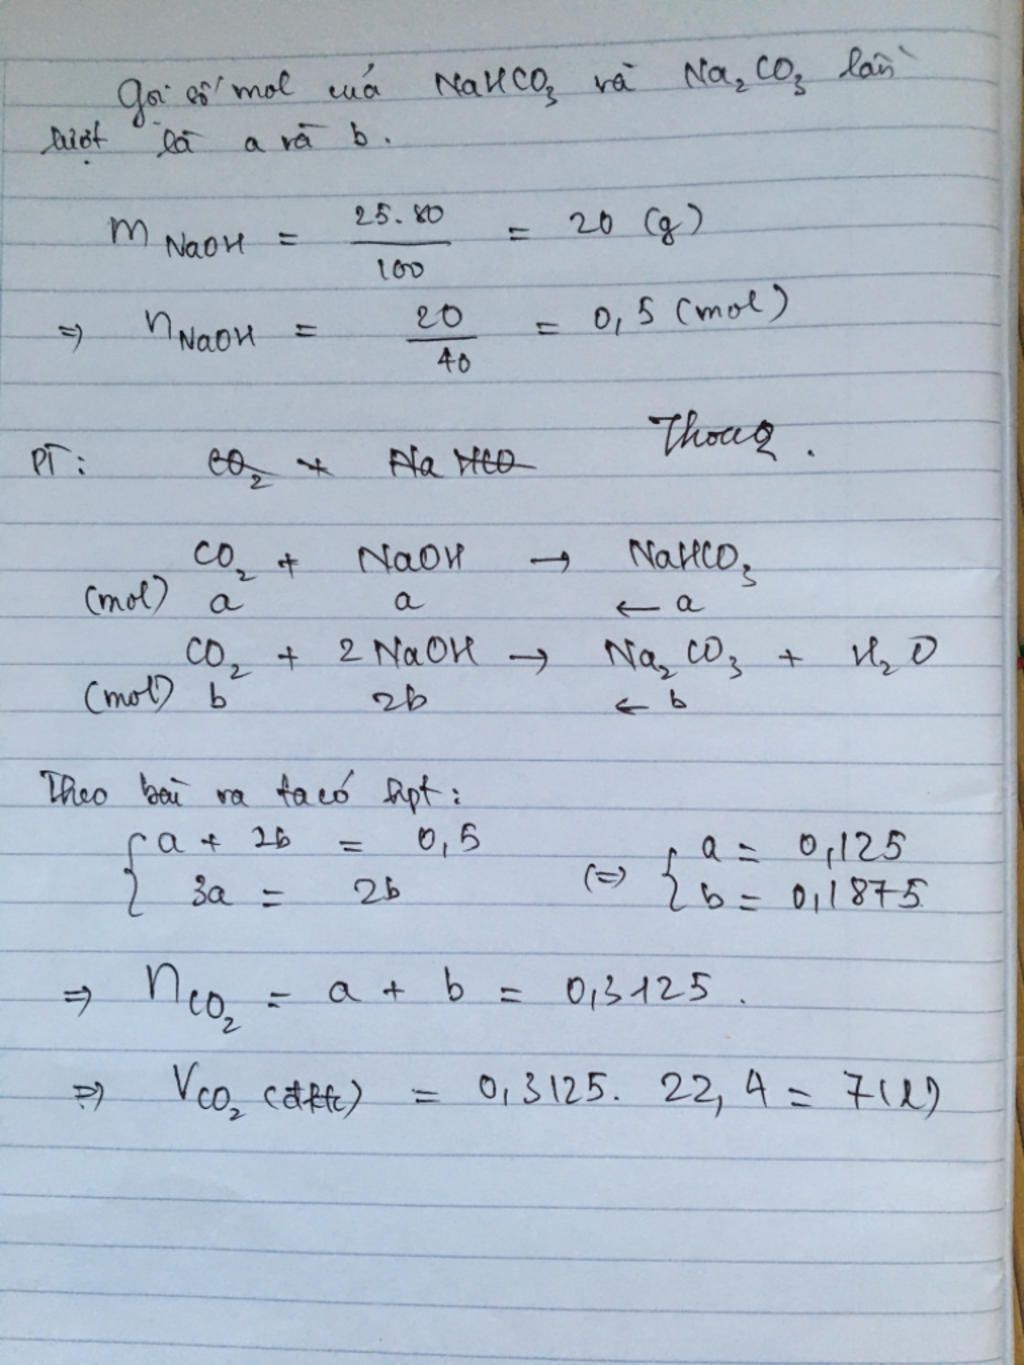 Gọi số mol của NaHCO3 và Na2CO3 lần
lượt là a và b.
m NaOH = 25.80 / 100 = 20 (g)
=> nNaOH = 20 / 40 = 0,5 (mol)
PT: CO2 + Na HCO
CO2 + NaOH → NaHCO3
(mol) a a ← a
CO2 + 2 NaOH → Na2CO3 + H2O
(mol) b 2b ← b
Theo bài ra ta có hpt:
{ a + 2b = 0,5
3a = 2b
(=) { a = 0,125
b = 0,1875
=> nCO2 = a + b = 0,3125.
=> VCO2 (đktc) = 0,3125. 22,4 = 7(l)